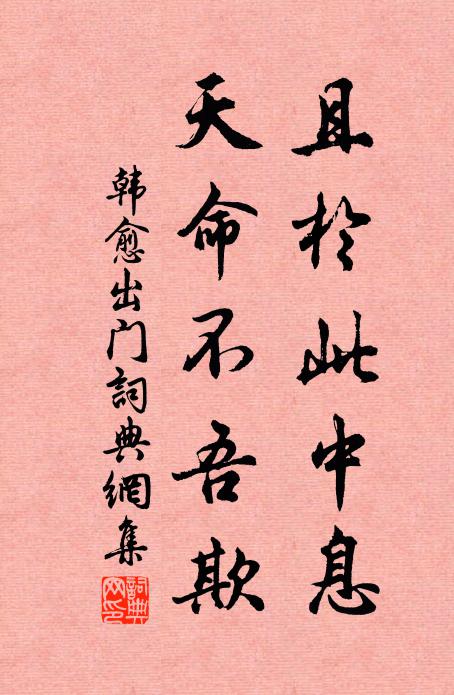 且於此中息
天命不吾欺
韩愈出门詞典網集
詞典
网印